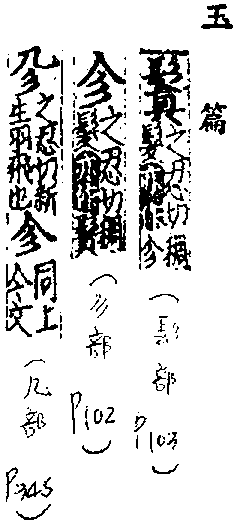 玉篇
鬒 之忍切稠
髮 㐱
(髟部 P.103)
㐱 之忍切稠
髮 鬒
(彡部 P.102)
之忍切新
生羽飛也 㐱 同上
今文
(几部 P.345)